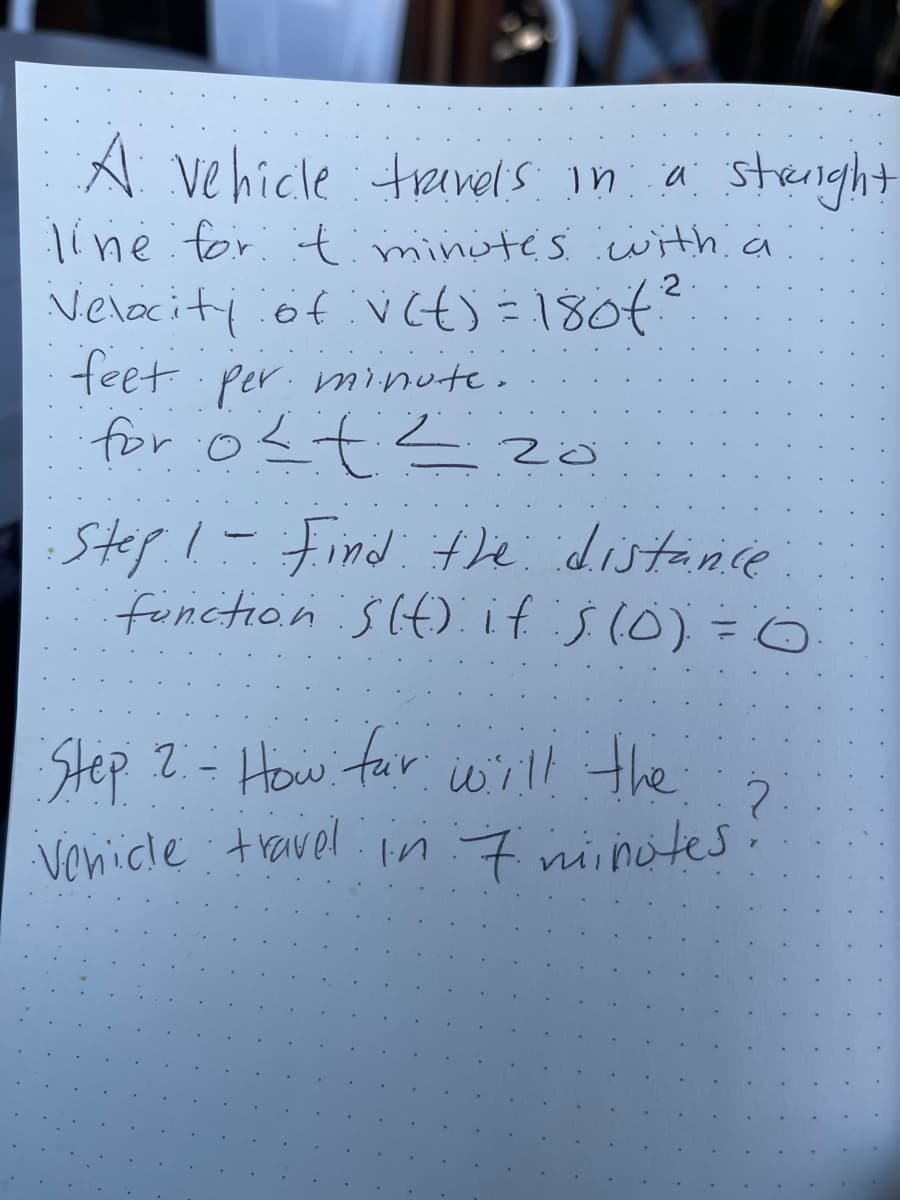 A vehicle travels in a straight
line for t minutes with a
velocity of v(t) = 180t²
feet per minute.
for 0 ≤ t ≤ 20
Step 1 - Find the distance
function s(t) if s(0) = 0
Step 2 - How far will the
vehicle travel in 7 minutes?